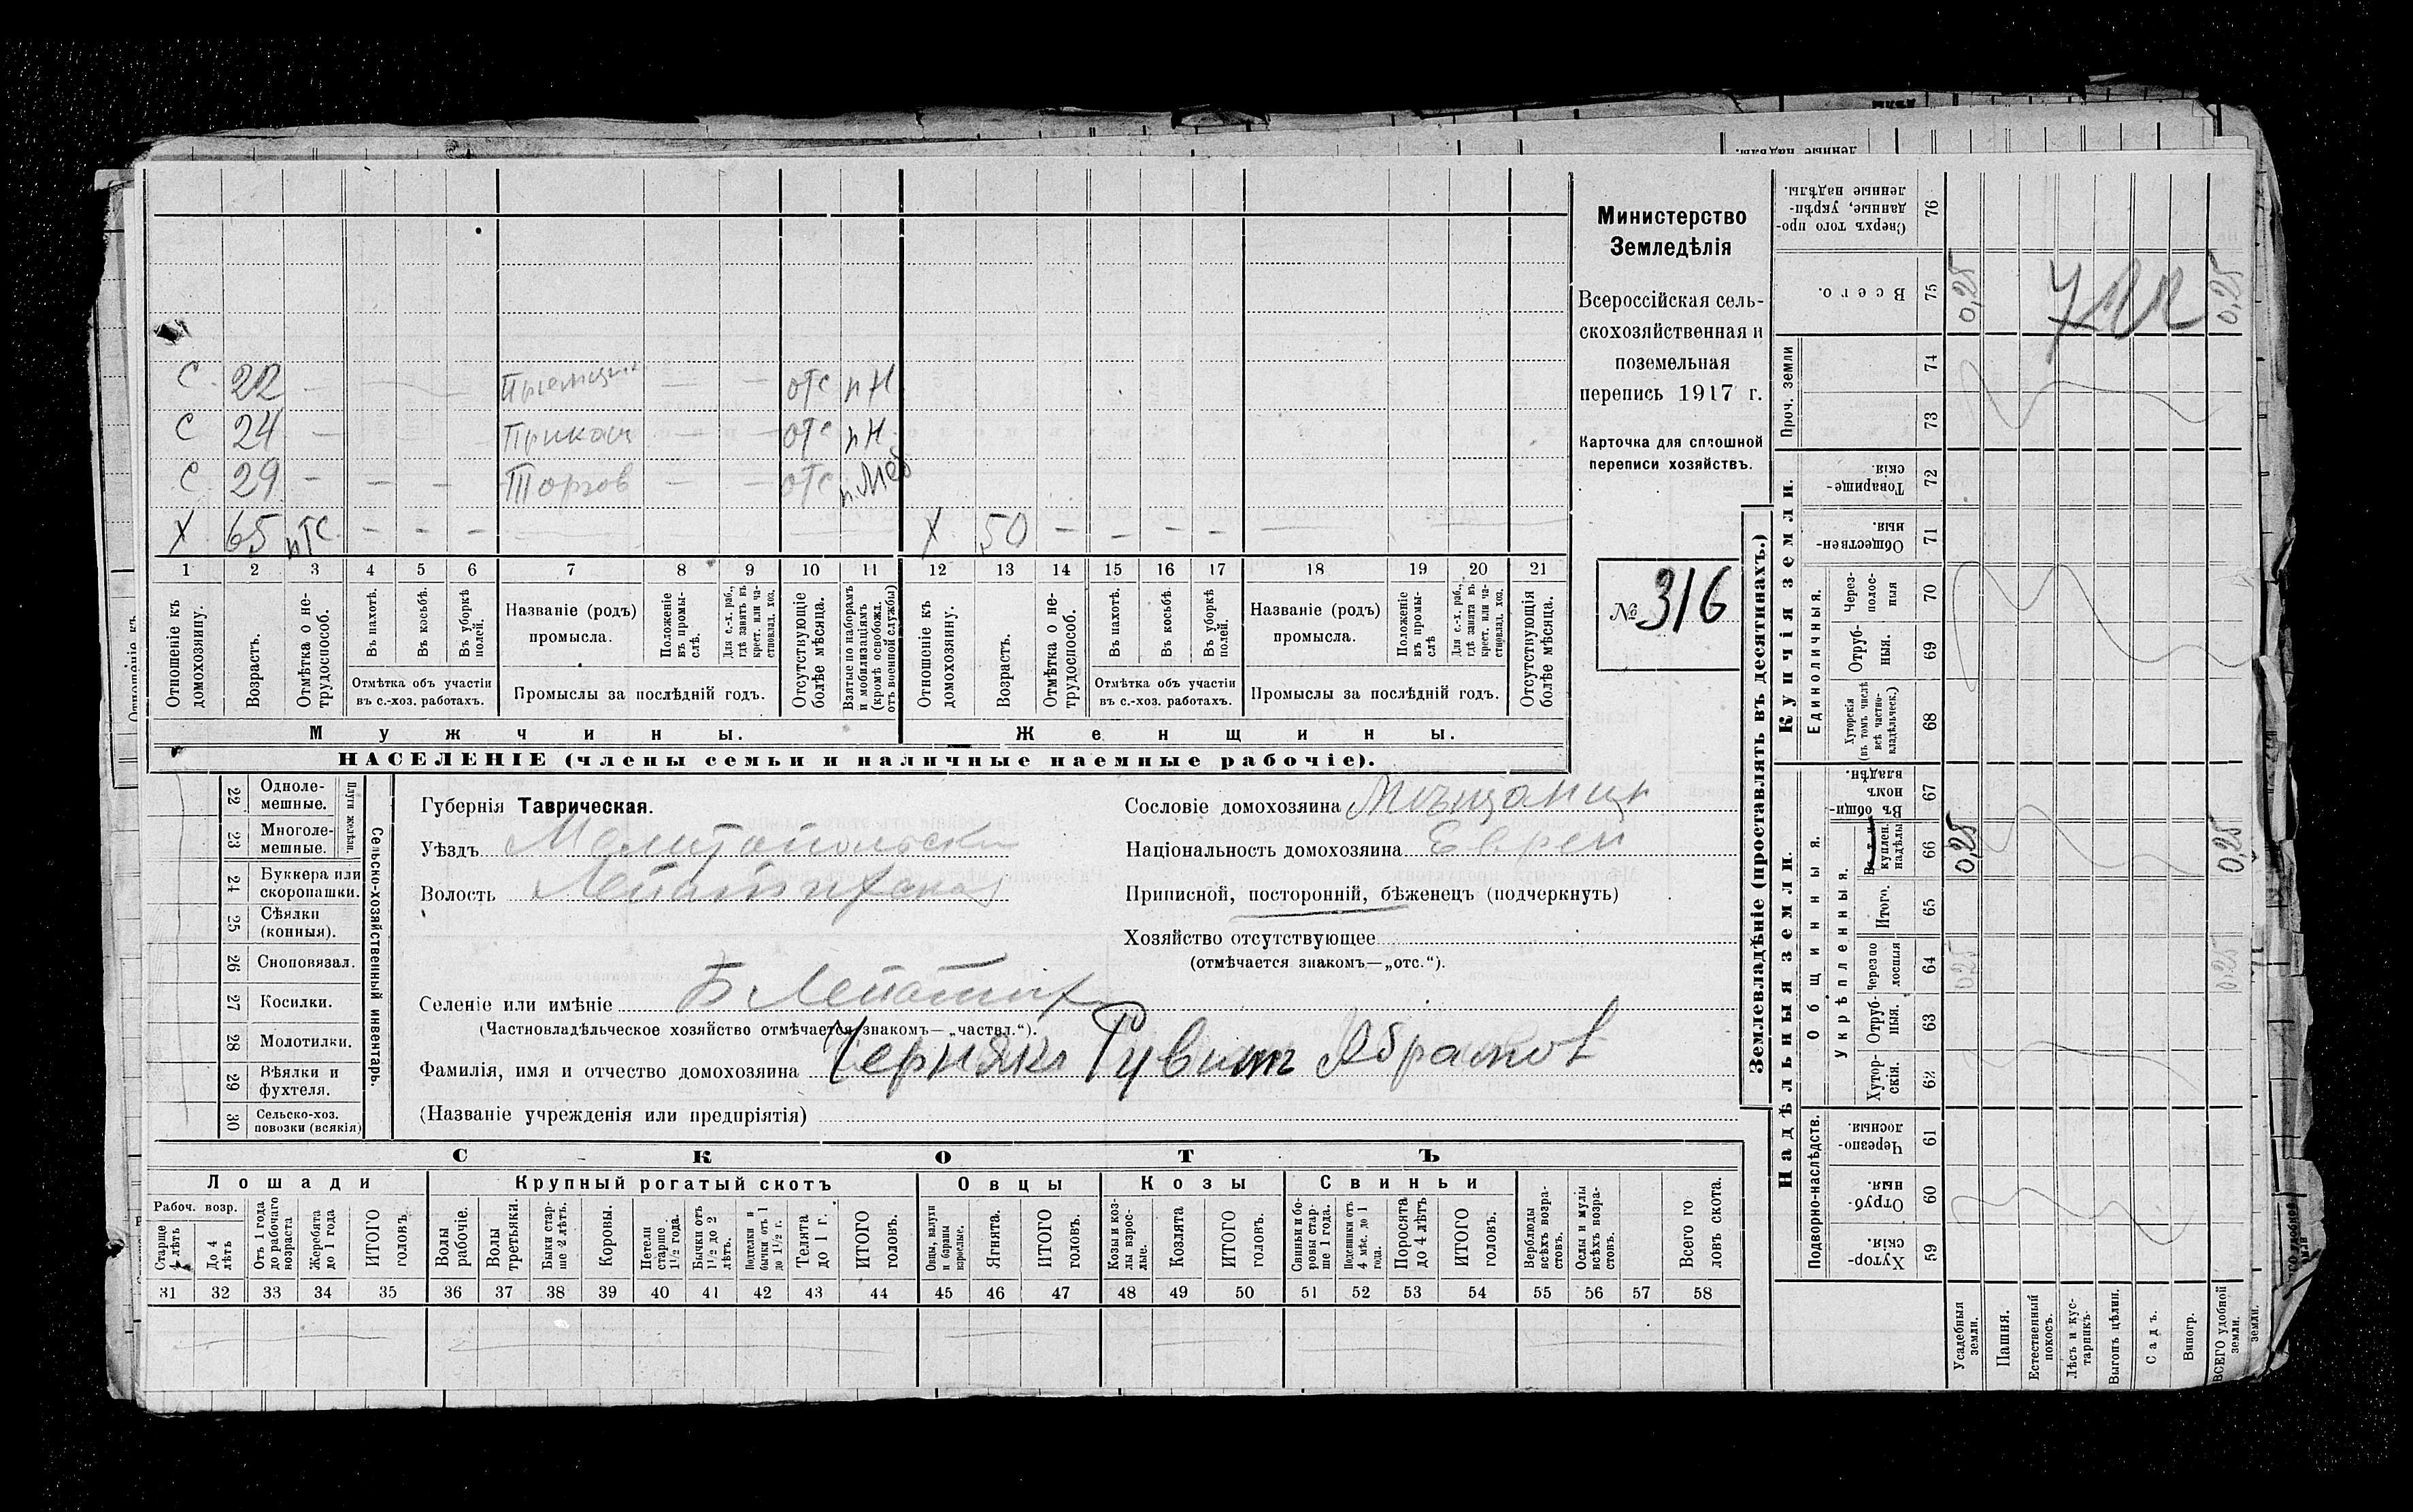 С 22 — отс пН
С 24 — Приказч — — отс пН
С 29 — — — Торгов — — отс
Х 65 нтс — — — Х 50 — — — —
1 2 3 4 5 6 7 8 9 10 11 12 13 14 15 16 17 18 19 20 21
Отношеніе къ домохозяину.
Возрастъ.
Отмѣтка о не-трудоспособ.
Въ пахотѣ.
Въ косьбѣ.
Въ уборкѣ полей.
Отмѣтка объ участіи
въ с.-хоз. работахъ.
Названіе (родъ)
промысла.
Положеніе въ промы-слѣ.
Для с.-х. раб., гдѣ занятъ въ крест. или ча-стновлад. хоз.
Промыслы за послѣдній годъ.
Отсутствующіе болѣе мѣсяца.
Взятые по наборамъ и мобилизаціямъ (кромѣ освобожд. отъ военной службы)
Отношеніе къ домохозяину.
Возрастъ.
Отмѣтка о не-трудоспособ.
Въ пахотѣ.
Въ косьбѣ.
Въ уборкѣ полей.
Отмѣтка объ участіи
въ с.-хоз. работахъ.
Названіе (родъ)
промысла.
Положеніе въ промы-слѣ
Для с.-х. раб., гдѣ занята въ крест. или ча-стновлад. хоз.
Промыслы за послѣдній годъ.
Отсутствующія болѣе мѣсяца.
Мужчины. Женщины.
НАСЕЛЕНІЕ (члены семьи и наличные наемные рабочіе).
Министерство
Земледѣлія
Всероссійская сель-
скохозяйственная и
поземельная
перепись 1917 г.
Карточка для сплошной
переписи хозяйствъ.
№ 316
Сельско-хозяйственный инвентарь.
Плуги желѣзн.
22 Одноле-мешные.
23 Многоле-мешные.
24 Буккера или скоропашки.
25 Сѣялки (конныя).
26 Сноповязал.
27 Косилки.
28 Молотилки.
29 Вѣялки и фухтеля.
30 Сельско-хоз. повозки (всякія)
Губернія Таврическая.
Уѣздъ Мелитопольски
Волость Лепатихская
Селеніе или имѣніе Б Лепатих
(Частновладѣльческое хозяйство отмѣчается знакомъ—„частвл.“).
Фамилія, имя и отчество домохозяина Чернякъ Рувим Абрамов
(Названіе учрежденія или предпріятія)
Сословіе домохозяина Мѣщанин
Національность домохозяина Еврей
Приписной, посторонній, бѣженецъ (подчеркнуть)
Хозяйство отсутствующее
(отмѣчается знакомъ—„отс.“).
СКОТЪ
Лошади Крупный рогатый скотъ Овцы Козы Свиньи
Рабоч. возр.
Старше 4 лѣтъ
До 4 лѣтъ
Отъ 1 года до рабочаго возраста
Жеребята до 1 года
ИТОГО головъ.
Волы рабочіе.
Волы третьяки.
Быки стар-ше 2 лѣтъ.
Коровы.
Нетели старше 1½ года.
Бычки отъ 1½ до 2 лѣтъ.
Подтелки и бычки отъ 1 до 1½ г.
Телята до 1 г.
ИТОГО головъ.
Овцы, валухи и бараны взрослые.
Ягнята.
ИТОГО головъ.
Козы и коз-лы взрос-лые.
Козлята
ИТОГО головъ.
Свиньи и бо-ровы стар-ше 1 года.
Подсвинки отъ 4 мѣс. до 1 года.
Поросята до 4 лѣтъ
ИТОГО головъ.
Верблюды всѣхъ возра-стовъ.
Ослы и мулы всѣхъ возра-стовъ.
Всего го ловъ скота.
31 32 33 34 35 36 37 38 39 40 41 42 43 44 45 46 47 48 49 50 51 52 53 54 55 56 57 58
Землевладѣніе (проставлять въ десятинахъ.)
Надѣльныя земли. Купчія земли. Проч. земли
Подворно-наслѣдств. Общинныя. Укрѣпленныя. Единоличныя.
Сверхъ того про-данные, укрѣп-ленные надѣлы. 76
Всего. 75 0,25 0,25
74
73
Товарище-скія. 72
Обществен-ныя. 71
Через-полос-ныя 70
Отруб-ныя. 69
Хуторскія (въ томъ числѣ всѣ частно-владѣльческ.) 68
Въ общи-номъ владѣн. 67
куплен. надѣлы 66 0,25 0,25
Итого. 65
Черезпо лосныя 64 0,25 0,25
Отруб-ныя. 63
Хутор-скія. 62
Черезпо-лосныя. 61
Отруб-ныя. 60
Хутор-скія. 59
Усадебныя земли.
Пашня.
Естественный покосъ.
Лѣсъ и кус-тарникъ.
Выгонъ цѣлин.
Садъ.
Виногр.
ВСЕГО удобной земли.